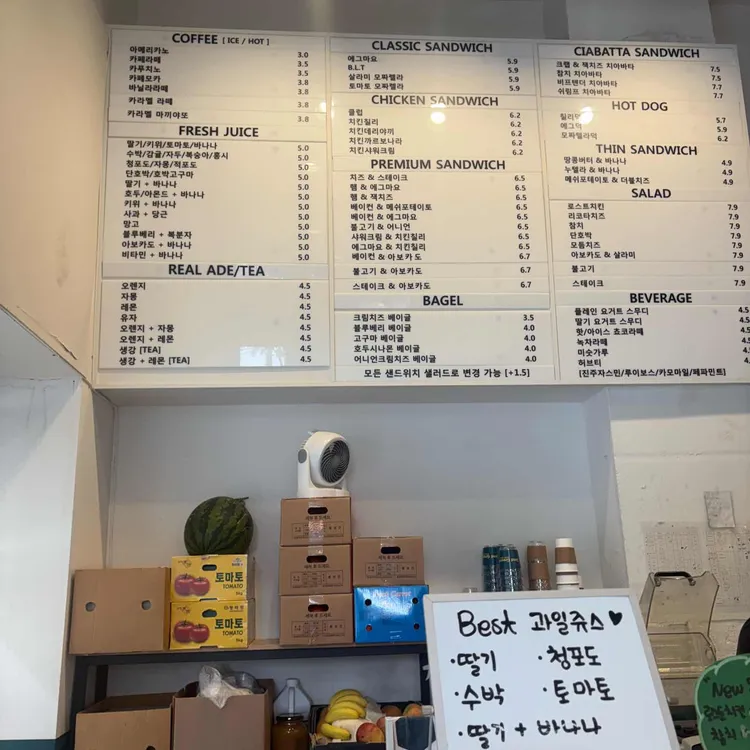 COFFEE [ ICE / HOT ]
아메리카노 3.0
카페라떼 3.5
카푸치노 3.5
카페모카 3.8
바닐라라떼 3.8
카라멜 라떼 3.8
카라멜 마끼야또 3.8
FRESH JUICE
딸기/키위/토마토/바나나 5.0
수박/감귤/자두/복숭아/홍시 5.0
청포도/자몽/적포도 5.0
단호박/호박고구마 5.0
딸기 + 바나나 5.0
호두/아몬드 + 바나나 5.0
키위 + 바나나 5.0
사과 + 당근 5.0
망고 5.0
블루베리 + 복분자 5.0
아보카도 + 바나나 5.0
비타민 + 바나나 5.0
REAL ADE/TEA
오렌지 4.5
자몽 4.5
레몬 4.5
유자 4.5
오렌지 + 자몽 4.5
오렌지 + 레몬 4.5
생강 [TEA] 4.5
생강 + 레몬 [TEA] 4.5
CLASSIC SANDWICH
에그마요 5.9
B.L.T 5.9
살라미 모짜렐라 5.9
토마토 모짜렐라 5.9
CHICKEN SANDWICH
클럽 6.2
치킨칠리 6.2
치킨데리야끼 6.2
치킨까르보나라 6.2
치킨샤워크림 6.2
PREMIUM SANDWICH
치즈 & 스테이크 6.5
햄 & 에그마요 6.5
햄 & 잭치즈 6.5
베이컨 & 메쉬포테이토 6.5
베이컨 & 에그마요 6.5
불고기 & 어니언 6.5
샤워크림 & 치킨칠리 6.5
에그마요 & 치킨칠리 6.5
베이컨 & 아보카도 6.7
불고기 & 아보카도 6.7
스테이크 & 아보카도 6.7
BAGEL
크림치즈 베이글 3.5
블루베리 베이글 4.0
고구마 베이글 4.0
호두시나몬 베이글 4.0
어니언크림치즈 베이글 4.0
모든 샌드위치 샐러드로 변경 가능 [+1.5]
CIABATTA SANDWICH
크랩 & 잭치즈 치아바타 7.5
참치 치아바타 7.5
비프텐더 치아바타 7.7
쉬림프 치아바타 7.7
HOT DOG
칠리덕 5.7
에그덕 5.9
모짜렐라덕 5.9
THIN SANDWICH
땅콩버터 & 바나나 4.9
누텔라 & 바나나 4.9
메쉬포테이토 & 더블치즈 4.9
SALAD
로스트치킨 7.9
리코타치즈 7.9
참치 7.9
단호박 7.9
모듬치즈 7.9
아보카도 & 살라미 7.9
불고기 7.9
스테이크 7.9
BEVERAGE
플레인 요거트 스무디 4.5
딸기 요거트 스무디 4.5
핫/아이스 쵸코라떼 4.5
녹차라떼 4.5
미숫가루 4.5
허브티
[진주자스민/루이보스/카모마일/페파민트]
토마토
TOMATO
5kg
토마토
TOMATO
5kg
Best 과일쥬스 ♥
·딸기 ·청포도
·수박 ·토마토
·딸기 + 바나나
New